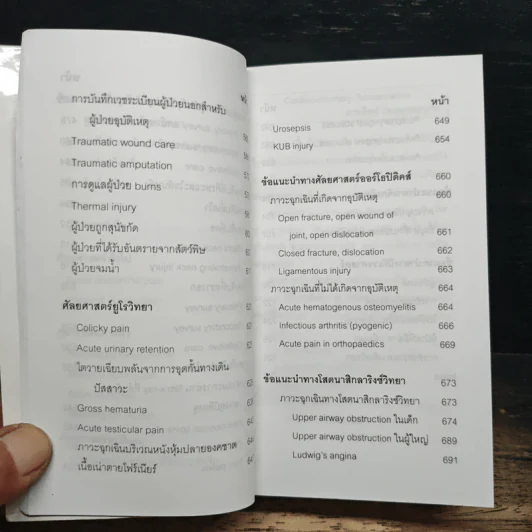 การบันทึกเวชระเบียนผู้ป่วยนอกสำหรับ
ผู้ป่วยอุบัติเหตุ
Traumatic wound care
Traumatic amputation
การดูแลผู้ป่วย burns
Thermal injury
ผู้ป่วยถูกสุนัขกัด
ผู้ป่วยที่ได้รับอันตรายจากสัตว์พิษ
ผู้ป่วยจมน้ำ
ศัลยศาสตร์ยูโรวิทยา
Colicky pain
Acute urinary retention
ไตวายเฉียบพลันจากการอุดกั้นทางเดิน
ปัสสาวะ
Gross hematuria
Acute testicular pain
ภาวะฉุกเฉินบริเวณหนังหุ้มปลายองคชาต
เนื้อเน่าตายโฟร์เนียร์
หน้า
Urosepsis 649
KUB injury 654
ข้อแนะนำทางศัลยศาสตร์ออร์โธปิดิคส์ 660
ภาวะฉุกเฉินที่เกิดจากอุบัติเหตุ 660
Open fracture, open wound of
joint, open dislocation 661
Closed fracture, dislocation 662
Ligamentous injury 663
ภาวะฉุกเฉินที่ไม่ได้เกิดจากอุบัติเหตุ 664
Acute hematogenous osteomyelitis 664
Infectious arthritis (pyogenic) 666
Acute pain in orthopaedics 669
ข้อแนะนำทางโสตนาสิกลาริงซ์วิทยา 673
ภาวะฉุกเฉินทางโสตนาสิกลาริงซ์วิทยา 673
Upper airway obstruction ในเด็ก 674
Upper airway obstruction ในผู้ใหญ่ 689
Ludwig's angina 691